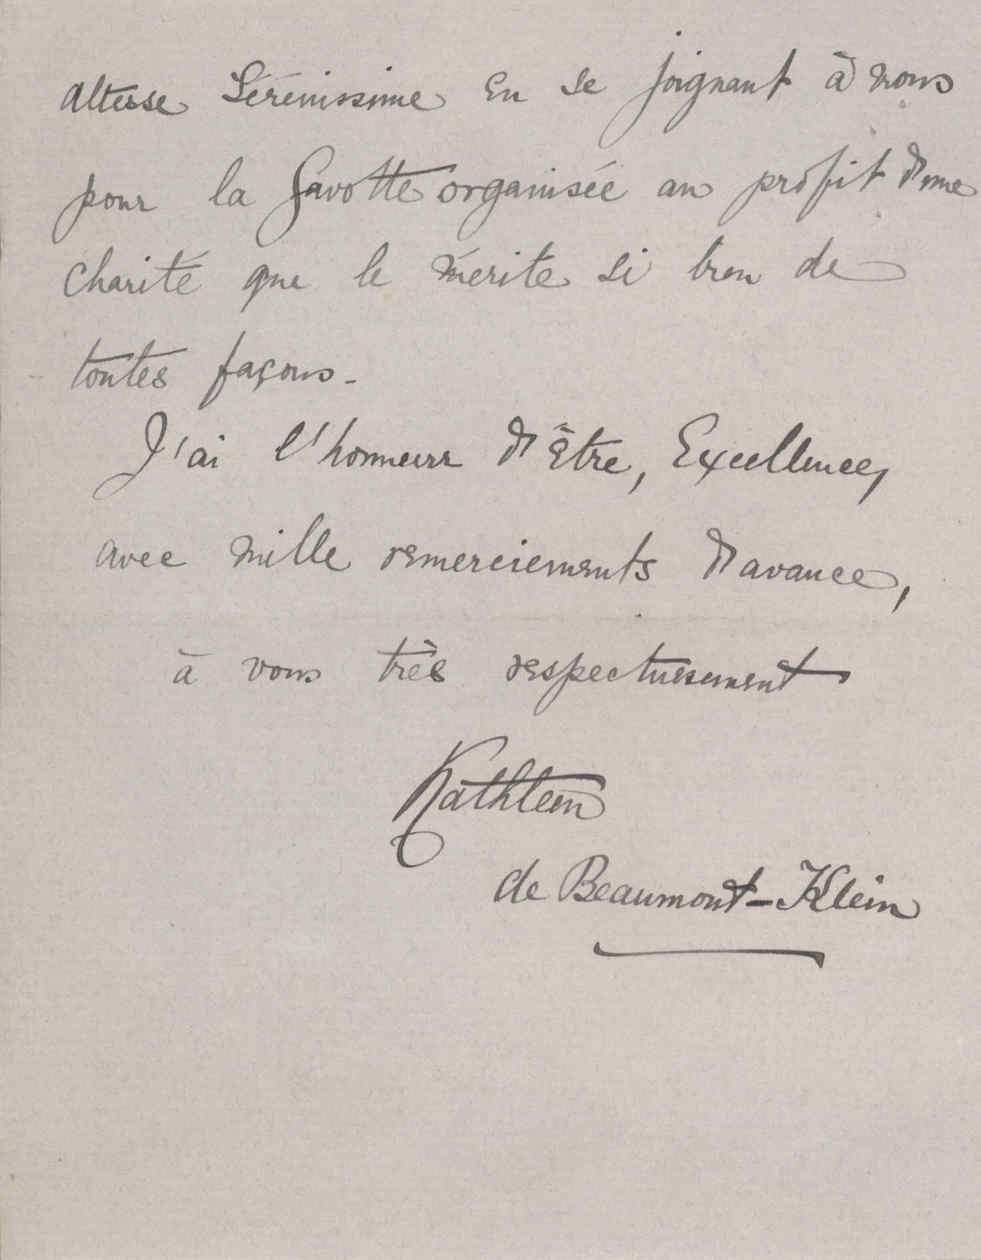 Altesse Sérénissime en se joignant à nous
pour la Gavotte organisée au profit d'une
Charité que le mérite si bien de
toutes façons.
J'ai l'honneur d'être, Excellence,
avec mille remerciements d'avance,
à vous très respectueusement
Kathleen
de Beaumont-Klein